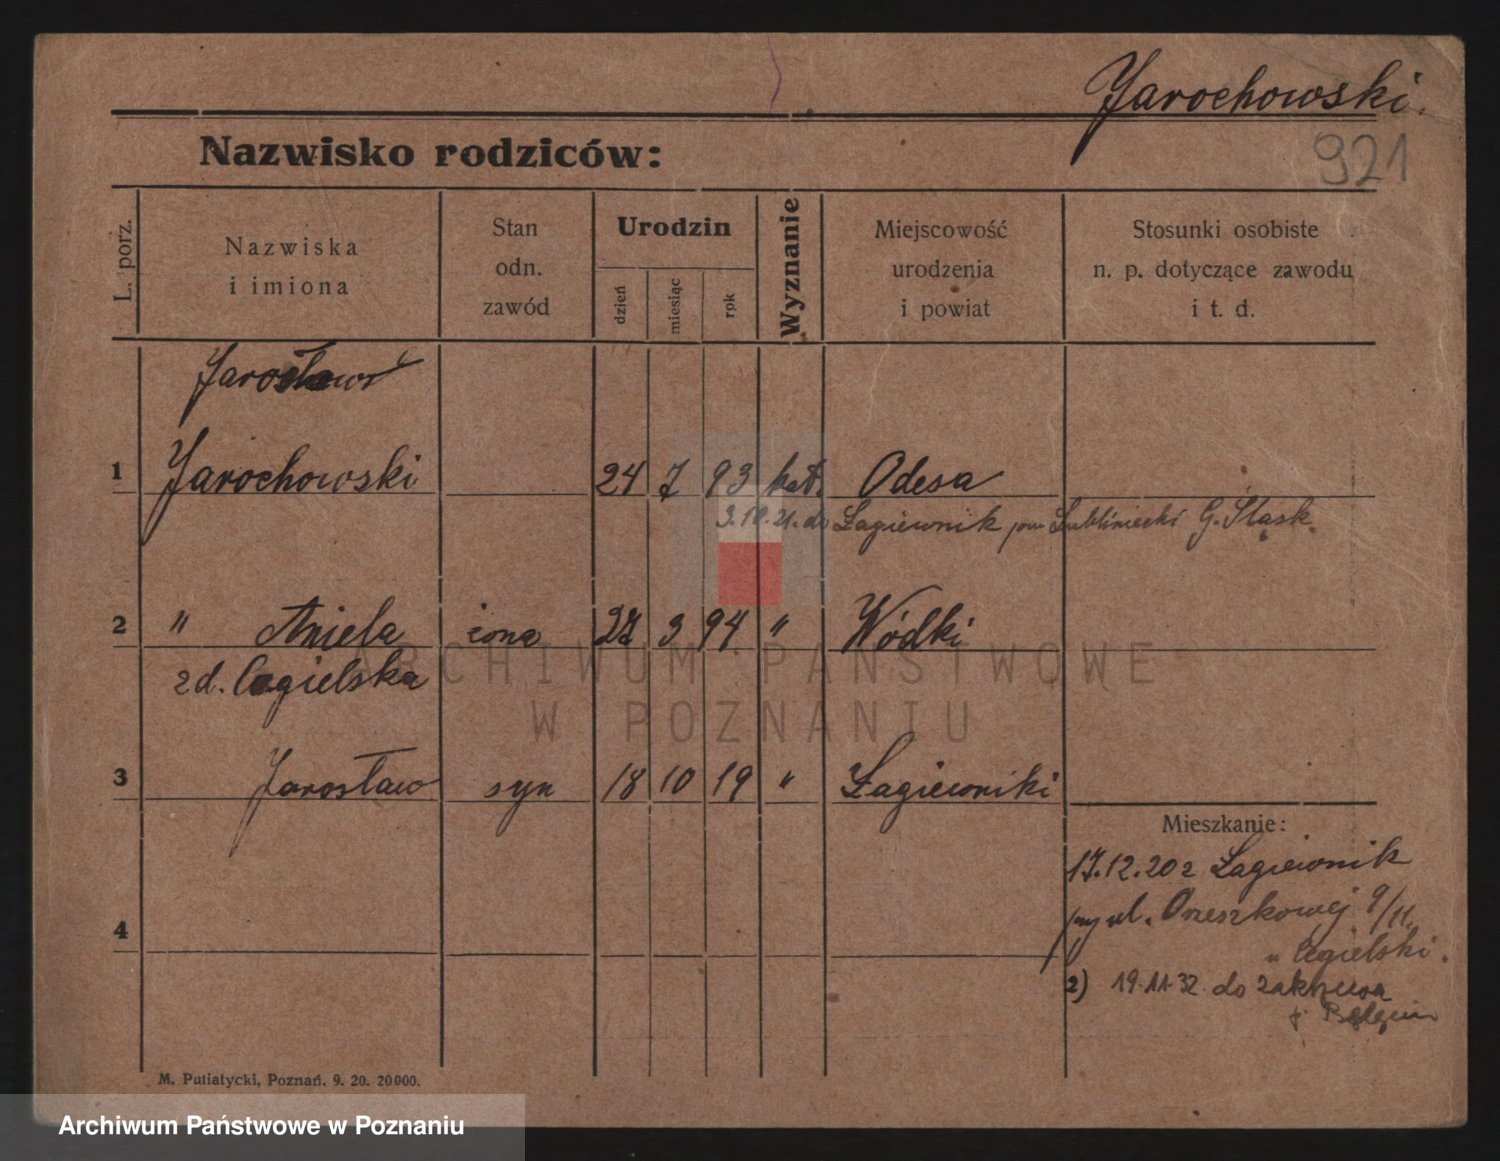 Jarochowski.
921
Nazwisko rodziców:
L. porz.
Nazwiska
i imiona
Stan
odn.
zawód
Urodzin
dzień
miesiąc
rok
Wyznanie
Miejscowość
urodzenia
i powiat
Stosunki osobiste
n. p. dotyczące zawodu
i t. d.
Jarosław
1 Jarochowski 24 7 93 kat. Odesa
3.10.21. do Łagiewnik pow Lubliniecki G. Śląsk.
2 " Aniela żona 27 3 94 " Wódki
zd. Cegielska
3 Jarosław syn 18 10 19 " Łagiewniki
Mieszkanie:
17.12.20 z Łagiewnik
przy ul. Orzeszkowej 9/11.
u Cegielski.
4
2) 19.11.32. do
M. Putiatycki, Poznań. 9. 20. 20000.
ARCHIWUM PAŃSTWOWE
W POZNANIU
Archiwum Państwowe w Poznaniu